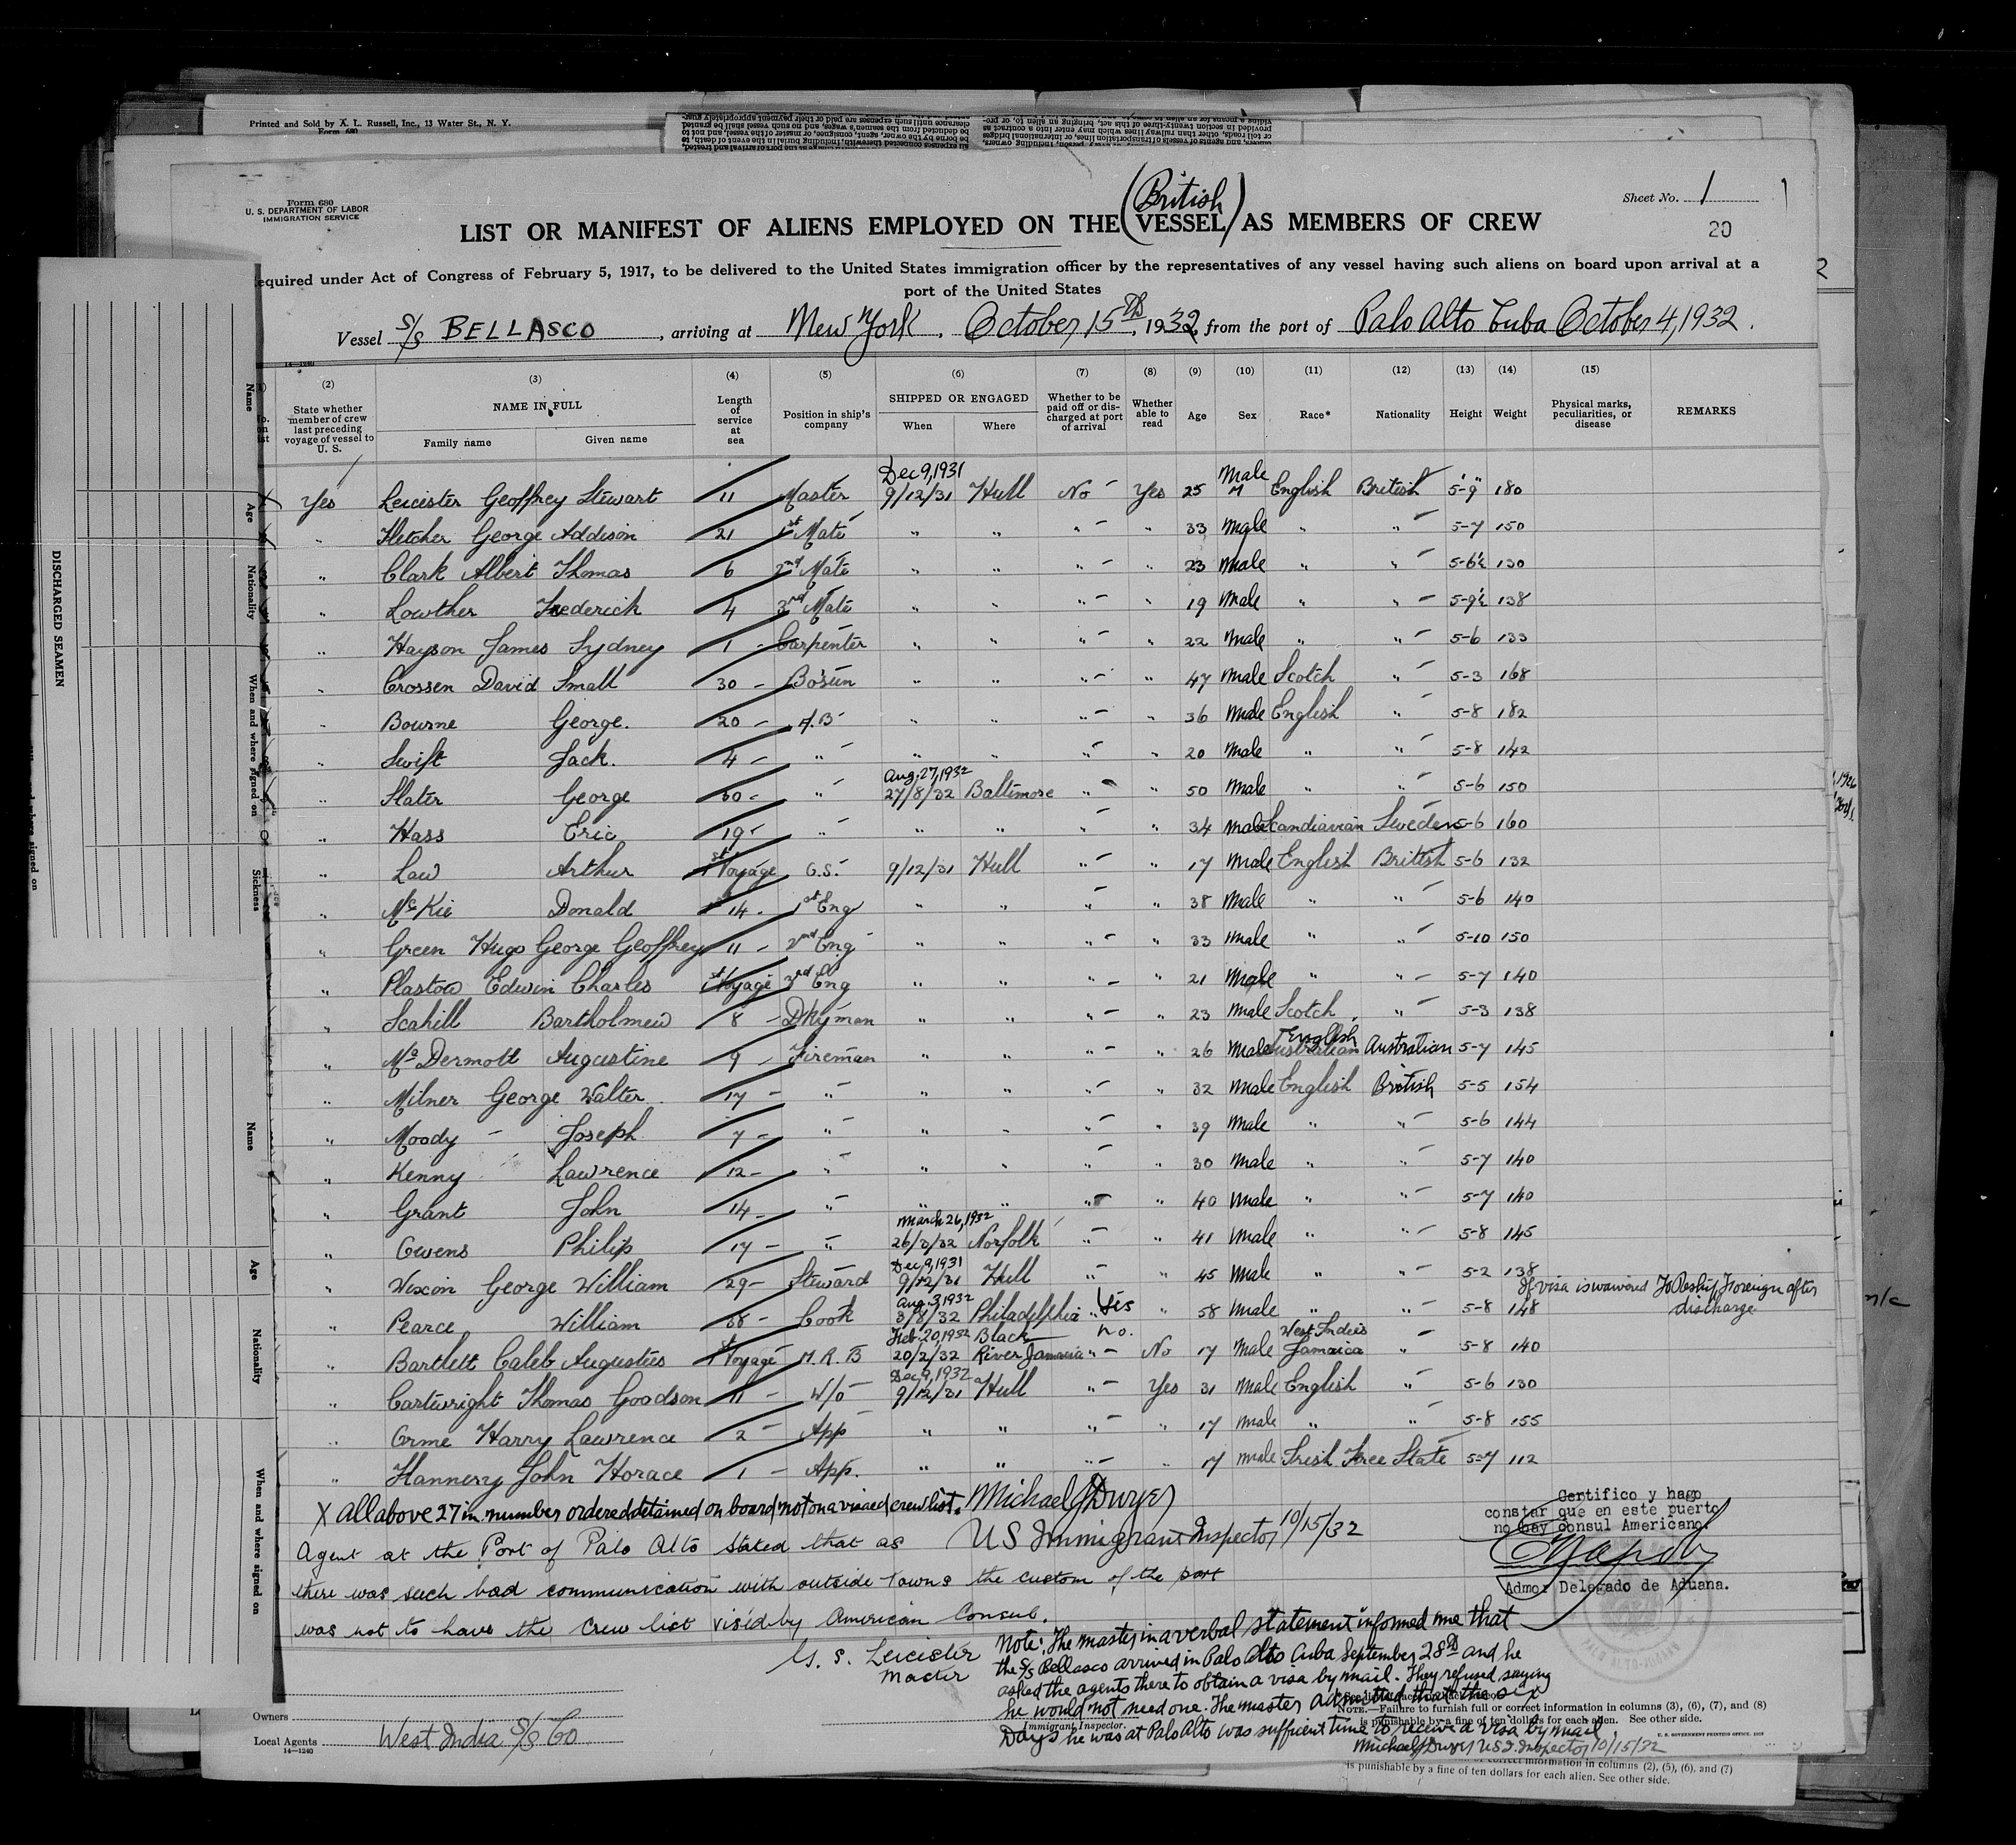 Printed and Sold by A. L. Russell, Inc., 13 Water St., N. Y.
Form 680
Form 680
U. S. DEPARTMENT OF LABOR
IMMIGRATION SERVICE
Sheet No. 1
20
(British)
LIST OR MANIFEST OF ALIENS EMPLOYED ON THE VESSEL AS MEMBERS OF CREW
equired under Act of Congress of February 5, 1917, to be delivered to the United States immigration officer by the representatives of any vessel having such aliens on board upon arrival at a
port of the United States
Vessel S/S BELLASCO, arriving at New York, October 15th, 1932, from the port of Palo Alto Cuba October 4, 1932.
(2) (3) (4) (5) (6) (7) (8) (9) (10) (11) (12) (13) (14) (15)
State whether member of crew last preceding voyage of vessel to U. S. NAME IN FULL Family name Given name Length of service at sea Position in ship's company SHIPPED OR ENGAGED When Where Whether to be paid off or discharged at port of arrival Whether able to read Age Sex Race* Nationality Height Weight Physical marks, peculiarities, or disease REMARKS
Dec 9, 1931 Male
Yes Leicester Geoffrey Stewart 11 Master 9/12/31 Hull No Yes 25 M English British 5-9 180
" Fletcher George Addison 21 1st Mate " " " " 33 Male " " 5-7 150
" Clark Albert Thomas 6 2nd Mate " " " " 23 Male " " 5-6½ 130
" Lowther Frederick 4 3rd Mate " " " " 19 Male " " 5-9½ 138
" Hayson James Sydney 1 Carpenter " " " " 22 Male " " 5-6 133
" Crossen David Small 30 Bo'sun " " " " 47 Male Scotch " 5-3 168
" Bourne George. 20 A.B " " " " 36 Male English " 5-8 182
" Swift Jack. 4 " " " " " 20 Male " " 5-8 142
Aug. 27, 1932
" Slater George 30 " 27/8/32 Baltimore " " 50 Male " " 5-6 150
" Hass Eric 19 " " " " " 34 Male Scandiavian Sweden 5-6 160
" Law Arthur 1st Voyage O.S. 9/12/31 Hull " " 17 Male English British 5-6 132
" McKie Donald 14 1st Eng " " " " 38 Male " " 5-6 140
" Green Hugo George Geoffrey 11 2nd Eng " " " " 33 Male " " 5-10 150
" Plastow Edwin Charles 1st Voyage 3rd Eng " " " " 21 Male " " 5-7 140
" Scahill Bartholmew 8 Dkyman " " " " 23 Male Scotch " 5-3 138
English
" McDermott Augustine 9 Fireman " " " " 26 Male Australian Australian 5-7 145
" Milner George Walter 17 " " " " " 32 Male English British 5-5 154
" Moody Joseph 7 " " " " " 39 Male " " 5-6 144
" Kenny Lawrence 12 " " " " " 30 Male " " 5-7 140
" Grant John 14 " " " " " 40 Male " " 5-7 140
March 26, 1932
" Owens Philip 17 " 26/3/32 Norfolk " " 41 Male " " 5-8 145
Dec 9, 1931
" Wixon George William 29 Steward 9/12/31 Hull " " 45 Male " " 5-2 138
Aug. 3, 1932 If visa is waivered To Reship Foreign after
" Pearce William 38 Cook 3/8/32 Philadelphia " Yes " 58 Male " " 5-8 148 discharge
Feb. 20, 1932 Black No. West Indies
" Bartlett Caleb Augustus 1st Voyage M.R.B 20/2/32 River Jamaica " No 17 Male Jamaica " 5-8 140
Dec 9, 1932
" Cartwright Thomas Goodson 11 W/O 9/12/31 Hull " Yes 31 Male English " 5-6 130
" Orme Harry Lawrence 2 App " " " " 17 Male " " 5-8 155
" Flannery John Horace 1 App. " " " " 17 Male Irish Free State 5-7 112
X all above 27 in number ordered detained on board not on a visaed crew list. Michael J Dwyer
US Immigrant Inspector 10/15/32
Agent at the Port of Palo Alto stated that as
there was such bad communication with outside towns the custom of the port
was not to have the crew list vis'd by American Consul.
G. S. Leicester
Master
Certifico y hago
constar que en este puerto
no hay consul Americano.
Admor Delegado de Aduana.
PALO ALTO-JUCARO
Note: The master in a verbal statement informed me that
the S/S Bellasco arrived in Palo Alto Cuba September 28th and he
asked the agents there to obtain a visa by mail. They refused saying
he would not need one. The master admitted that the six
Days he was at Palo Alto was sufficient time to receive a visa by mail
Michael J Dwyer U.S. I. Inspector 10/15/32
Immigrant Inspector.
NOTE.—Failure to furnish full or correct information in columns (3), (6), (7), and (8)
is punishable by a fine of ten dollars for each alien. See other side.
U. S. GOVERNMENT PRINTING OFFICE
Owners
Local Agents West India S/S Co
14—1240
correct information in columns (2), (5), (6), and (7)
is punishable by a fine of ten dollars for each alien. See other side.
DISCHARGED SEAMEN
Name
Age
Nationality
When and where signed on
Sickness
Name
Age
Nationality
When and where signed on
n/c